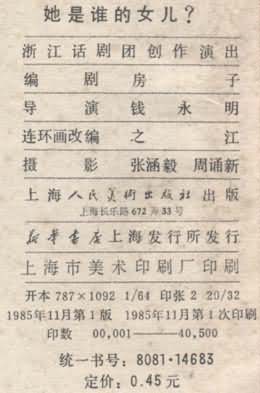 她是谁的女儿？
浙江话剧团创作演出
编剧 房子
导演 钱永明
连环画改编 之江
摄影 张涵毅 周诵新
上海人民美术出版社出版
上海长乐路672弄33号
新华书店上海发行所发行
上海市美术印刷厂印刷
开本 787×1092 1/64 印张 2 20/32
1985年11月第1版 1985年11月第1次印刷
印数 00,001——40,500
统一书号：8081·14683
定价：0.45元